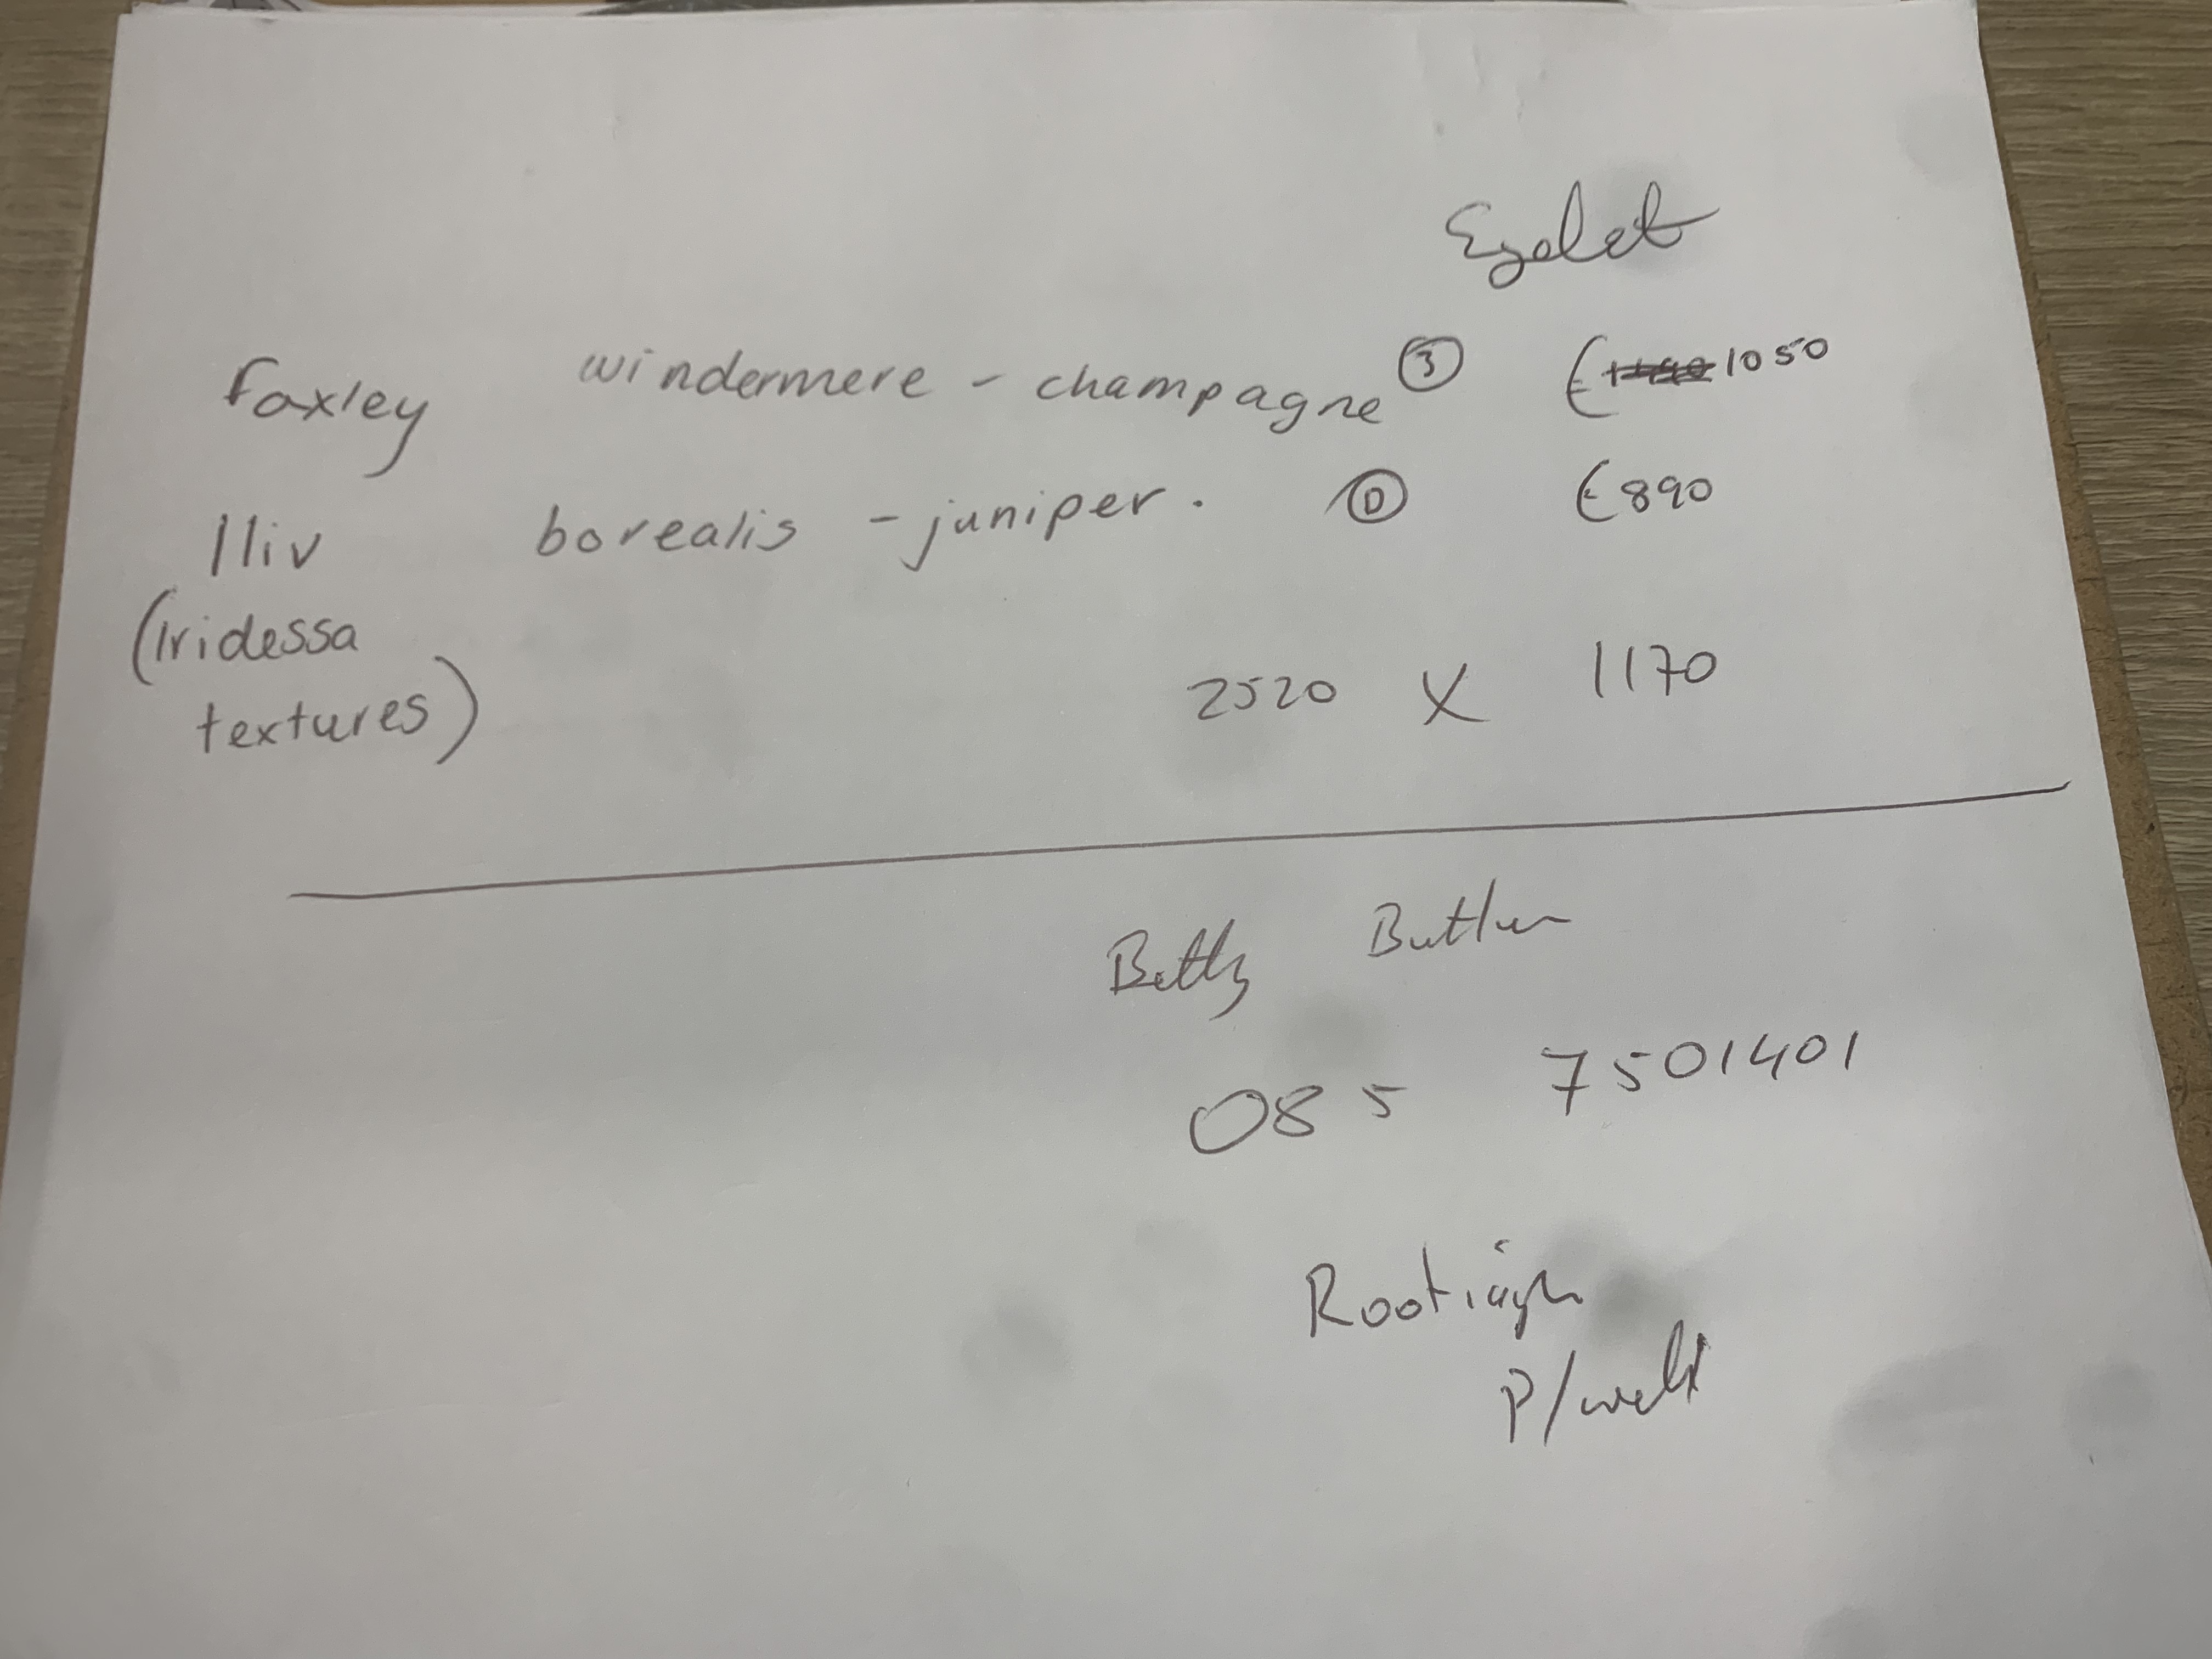 Eyelet
Foxley windermere - champagne ③ € 1050
Iliv borealis - juniper. Ⓓ € 890
(Iridessa
textures)
2520 X 1170
Betty Butler
085 7501401
P/